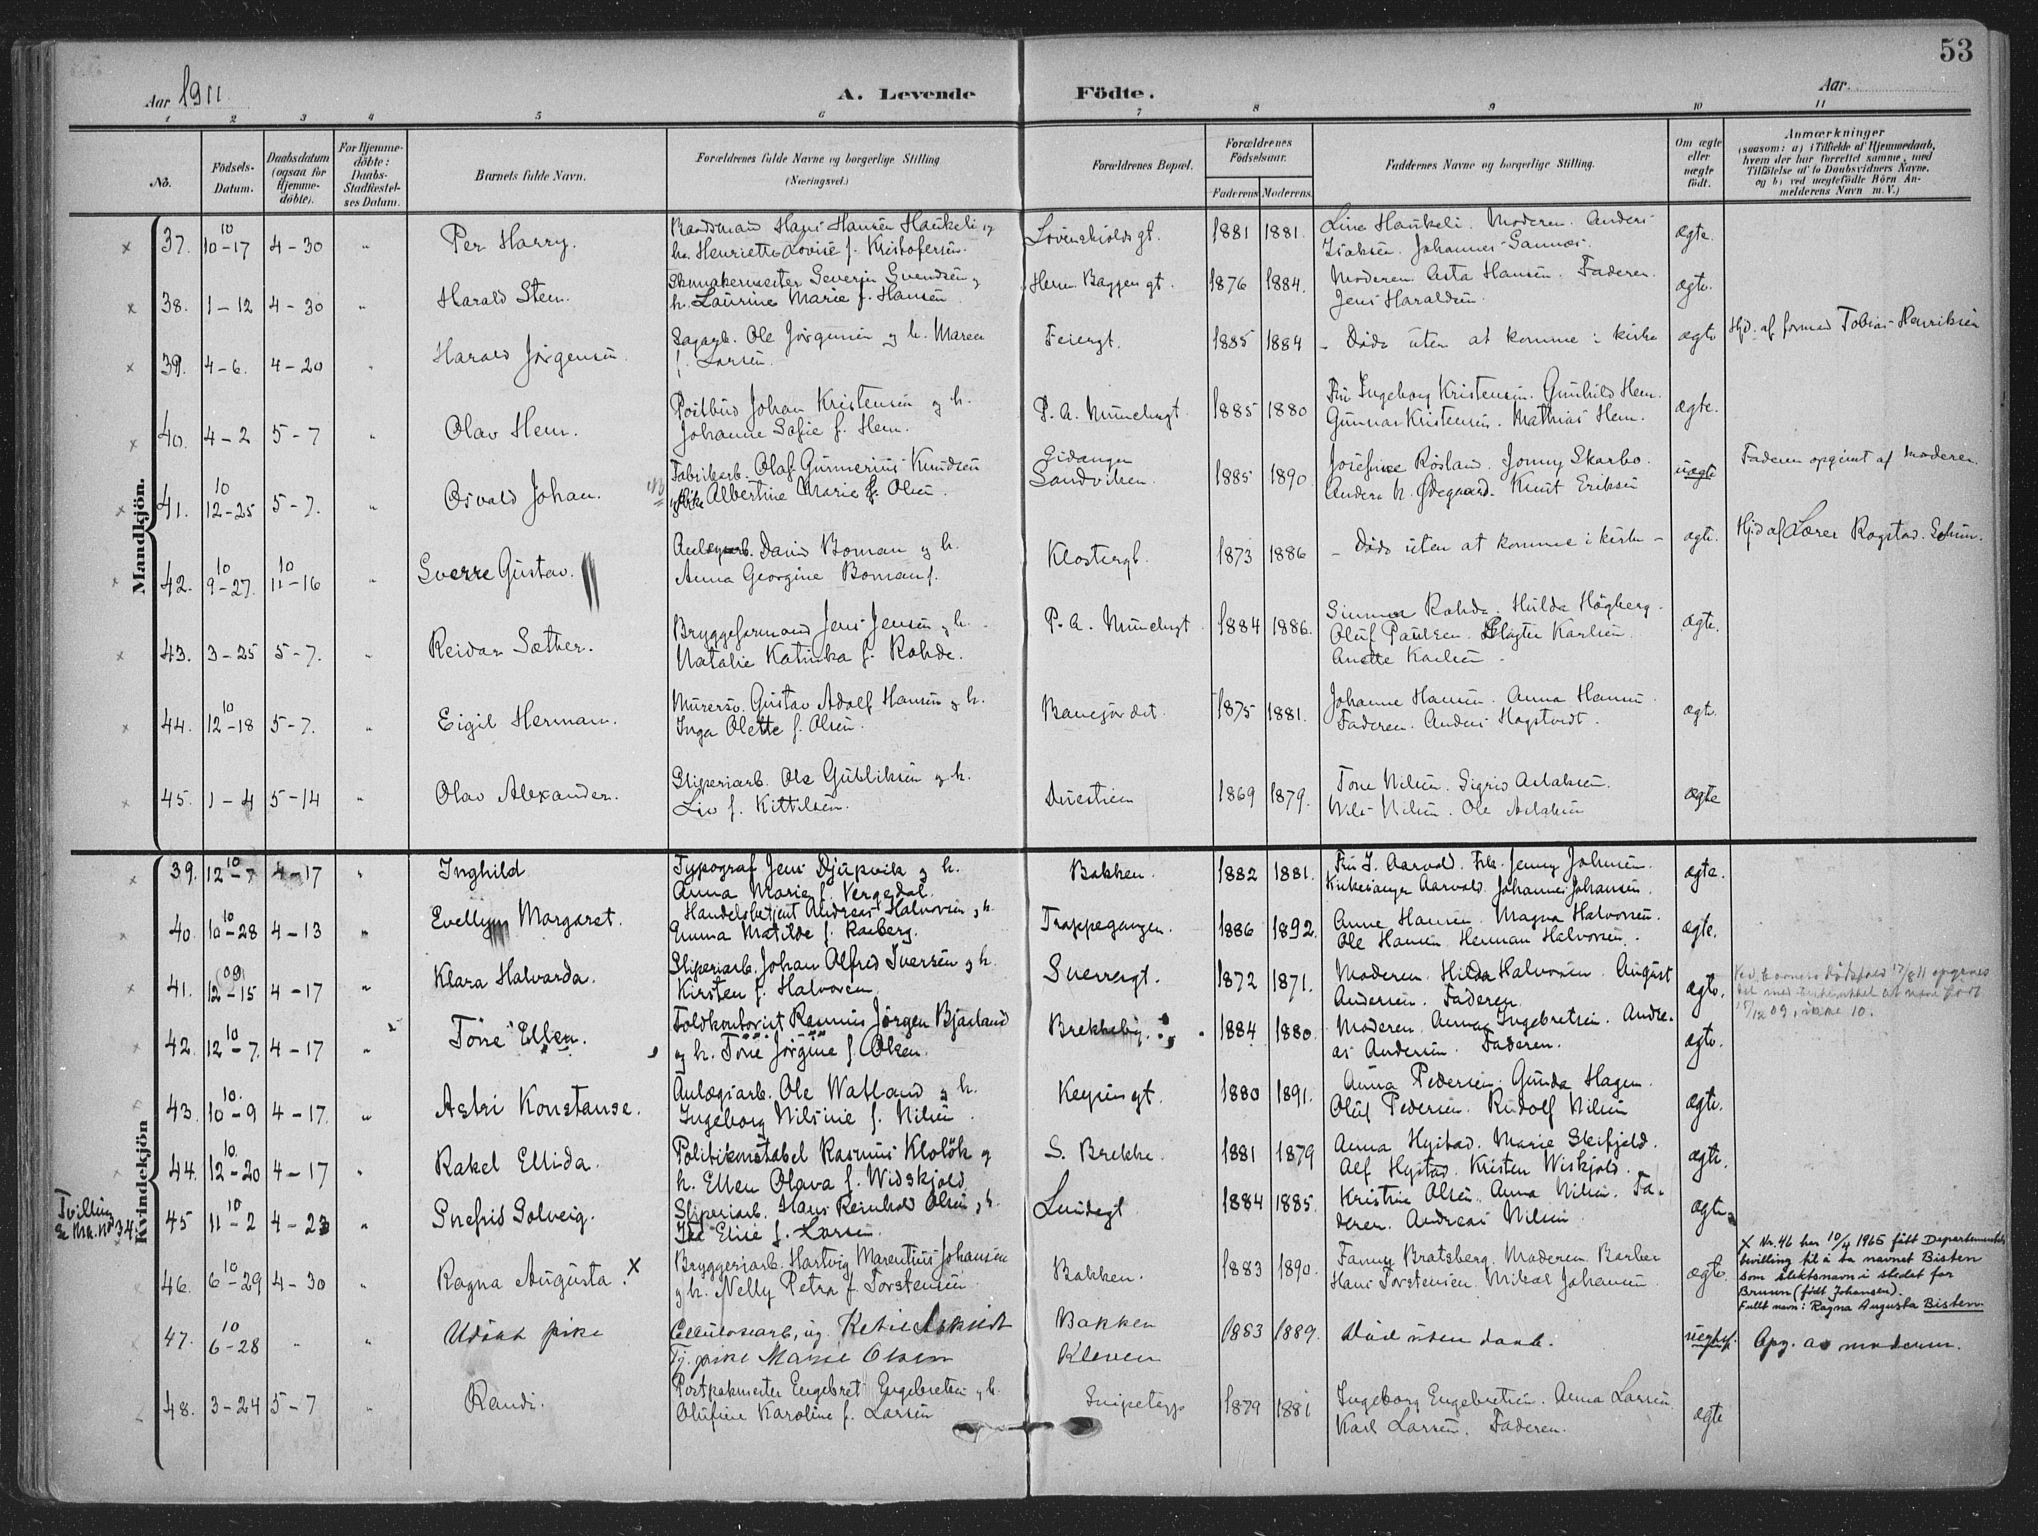 53
Aar 1911
A. Levende Födte.
Aar
1 2 3 4 5 6 7 8 9 10 11
No.
Födsels-Datum.
Daabsdatum (ogsaa for Hjemme-döbte).
For Hjemme-döbte: Daabs-Stadfæstel-ses Datum.
Barnets fulde Navn.
Forældrenes fulde Navne og borgerlige Stilling (Næringsvei.)
Forældrenes Bopæl.
Forældrenes Födselsaar.
Faderens Moderens.
Faddernes Navne og borgerlige Stilling.
Om ægte eller uægte födt.
Anmærkninger
(saasom: a) i Tilfælde af Hjemmedaab, hvem der har forrettet samme, med Tilföielse af to Daabsvidners Navne, og b) ved uægtefödte Börn An-melderens Navn m. V.)
Mandkjön.
37. 10 10-17 4-30 " Per Harry.
Baadsmand Hans Hansen Haukeli og
h. Henriette Lovise f. Kristofersen.
Løvenskjolds gt. 1881 1881.
Lina Haukeli. Moderen. Anders
Isaksen. Johannes Sannæs.
ægte.
38. 1-12 4-30 " Harald Steen.
Skomakermester Severin Svendsen og
h. Laurine Marie f. Hansen
Herm. Baggers gt. 1876 1884.
Moderen. Asta Hansen. Faderen.
Jens Haraldsen.
ægte.
39. 4-6. 4-20 " Harald Jørgensen.
Sagarb. Ole Jørgensen og h. Maren
f. Larsen.
Feiergt. 1885 1884
- Døde uten at komme i kirke
ægte
Hjd. af formand Tobias Henriksen
40. 4-2 5-7 " Olav Hem.
Postbud Johan Kristensen og h.
Johanne Sofie f. Hem.
P. A. Munchsgt. 1885 1880
Fru Ingeborg Kristensen. Gunhild Hem.
Gunnar Kristensen. Mathias Hem.
ægte.
41. 10 12-25 5-7. " Osvald Johan.
Fabrikarb. Olaf Gunnerius Knudsen
og Pike Albertine Marie f. Olsen.
Eidanger
Sandviken. 1885 1890
Josefine Røsland. Jonny Skarbo.
Anders h. Ødegaard. Knut Eriksen
uægte
Faderen opgivet af moderen.
42. 10 9-27. 10 11-16 " Sverre Gustav.
Anlægsarb. David Boman og h.
Anna Georgine Boman f.
Klostergt. 1873 1886
- Døde uten at komme i kirke -
ægte.
Hjd af Lærer Rogstad. Solum.
43. 3-25 5-7. " Reidar Sæther.
Bryggeformand Jens Jensen og h.
Natalie Katinka f. Rohde.
P. A. Munchsgt. 1884 1886.
Rohde. Hulda Høgberg.
Oluf Paulsen. Slagter Karlsen.
Anette Karlsen.
ægte.
44. 10 12-18 5-7. " Eigil Herman.
Murersv. Gustav Adolf Hansen og h.
Inga Olette f. Olsen.
Banejordet. 1875 1881.
Johanne Hansen. Anna Hansen.
Faderen. Anders Hagstvedt.
ægte.
45. 1-4 5-14 " Olav Alexander.
Sliperiarb. Ole Gulliksen og h.
Liv f. Kittilsen.
Duestien 1869 1879.
Tone Nilsen. Sigrid Aslaksen.
Nils Nilsen. Ole Aslaksen
ægte
Kvindekjön
39. 10 12-7 4-17 " Inghild
Typograf Jens Djupvik og h.
Anna Marie f. Vergedal.
Bakken. 1882 1881.
Fru I. Aarvold. Frk. Jenny Johnsen.
Kirkesanger Aarvold. Johannes Johansen.
ægte.
40. 10 10-28 4-13 " Evellyn Margaret.
Handelsbetjent Andreas Halvorsen og h.
Emma Matilde f. Raeberg.
Trappegangen. 1886 1892.
Anne Hansen. Magna Halvorsen.
Ole Hansen. Herman Halvorsen.
ægte.
41. 09 12-15 4-17 " Klara Halvarda.
Sliperiarb. Johan Alfred Iversen og h.
Kirsten f. Halvorsen.
Sverresgt. 1872 1871.
Moderen. Hilda Halvorsen. August
Andersen. Faderen.
ægte.
15/12 09, ikke 10.
42. 10 12-7. 4-17 " Tone Ellen.
Toldkontorist Rasmus Jörgen Bjaaland
og h. Tone Jörgine f. Olsen.
Brekkeby. 1884 1880.
Moderen. Anna Ingebretsen. Andre-
as Andersen. Faderen.
ægte.
43. 10 10-9 4-17. " Astri Konstanse.
Anlægsarb. Ole Watland og h.
Ingeborg Nilsine f. Nilsen.
Keysers gt. 1880 1891.
Anna Pedersen. Gunda Hagen.
Oluf Pedersen. Rudolf Nilsen
ægte.
44. 10 12-20 4-17 " Rakel Ellida.
Politikonstabel Rasmus Klolök og
h. Ellen Olava f. Widskjold
S. Brekke. 1881 1879
Anna Hystad. Marie Skifjeld.
Alf Hystad. Kristen Wiskjold.
ægte.
Tvilling
Se Mk. No 34
45 10 11-2 4-23 " Snefrid Solveig.
Sliperiarb. Hans Reinhold Olsen, h.
Ida Elise f. Larsen.
Lundegt 1884 1885.
Kristine Olsen. Anna Nilsen. Fa-
deren. Andreas Nilsen
ægte
46. 10 6-29 4-30 " Ragna Augusta. X
Bryggeriarb. Hartvig Marentius Johansen
og h. Nelly Petra f. Torstensen
Bakken. 1883 1890.
Fanny Bratsberg. Moderen. Barber
Hans Torstensen. Mikal Johansen
ægte.
X Nr. 46 har 10/4 1965 fått Departementets
bevilling til å ta navnet Bisten
som slektsnavn i stedet for
Bruun (født Johansen).
Fullt navn: Ragna Augusta Bisten.
47. 10 6-28 " " Udöbt pike
Cellulosearb, ug. Ketil
Tj. pike Marie Olsen
Bakken
Kleven 1883 1889.
Död uten daab.
uegte f.
Opg. av moderen.
48. 3-24 5-7 " Randi.
Postpakmester Engebret Engebretsen og h.
Olufine Karoline f. Larsen
Snipetorp 1879 1881
Ingeborg Engebretsen. Anna Larsen
Karl Larsen. Faderen.
ægte